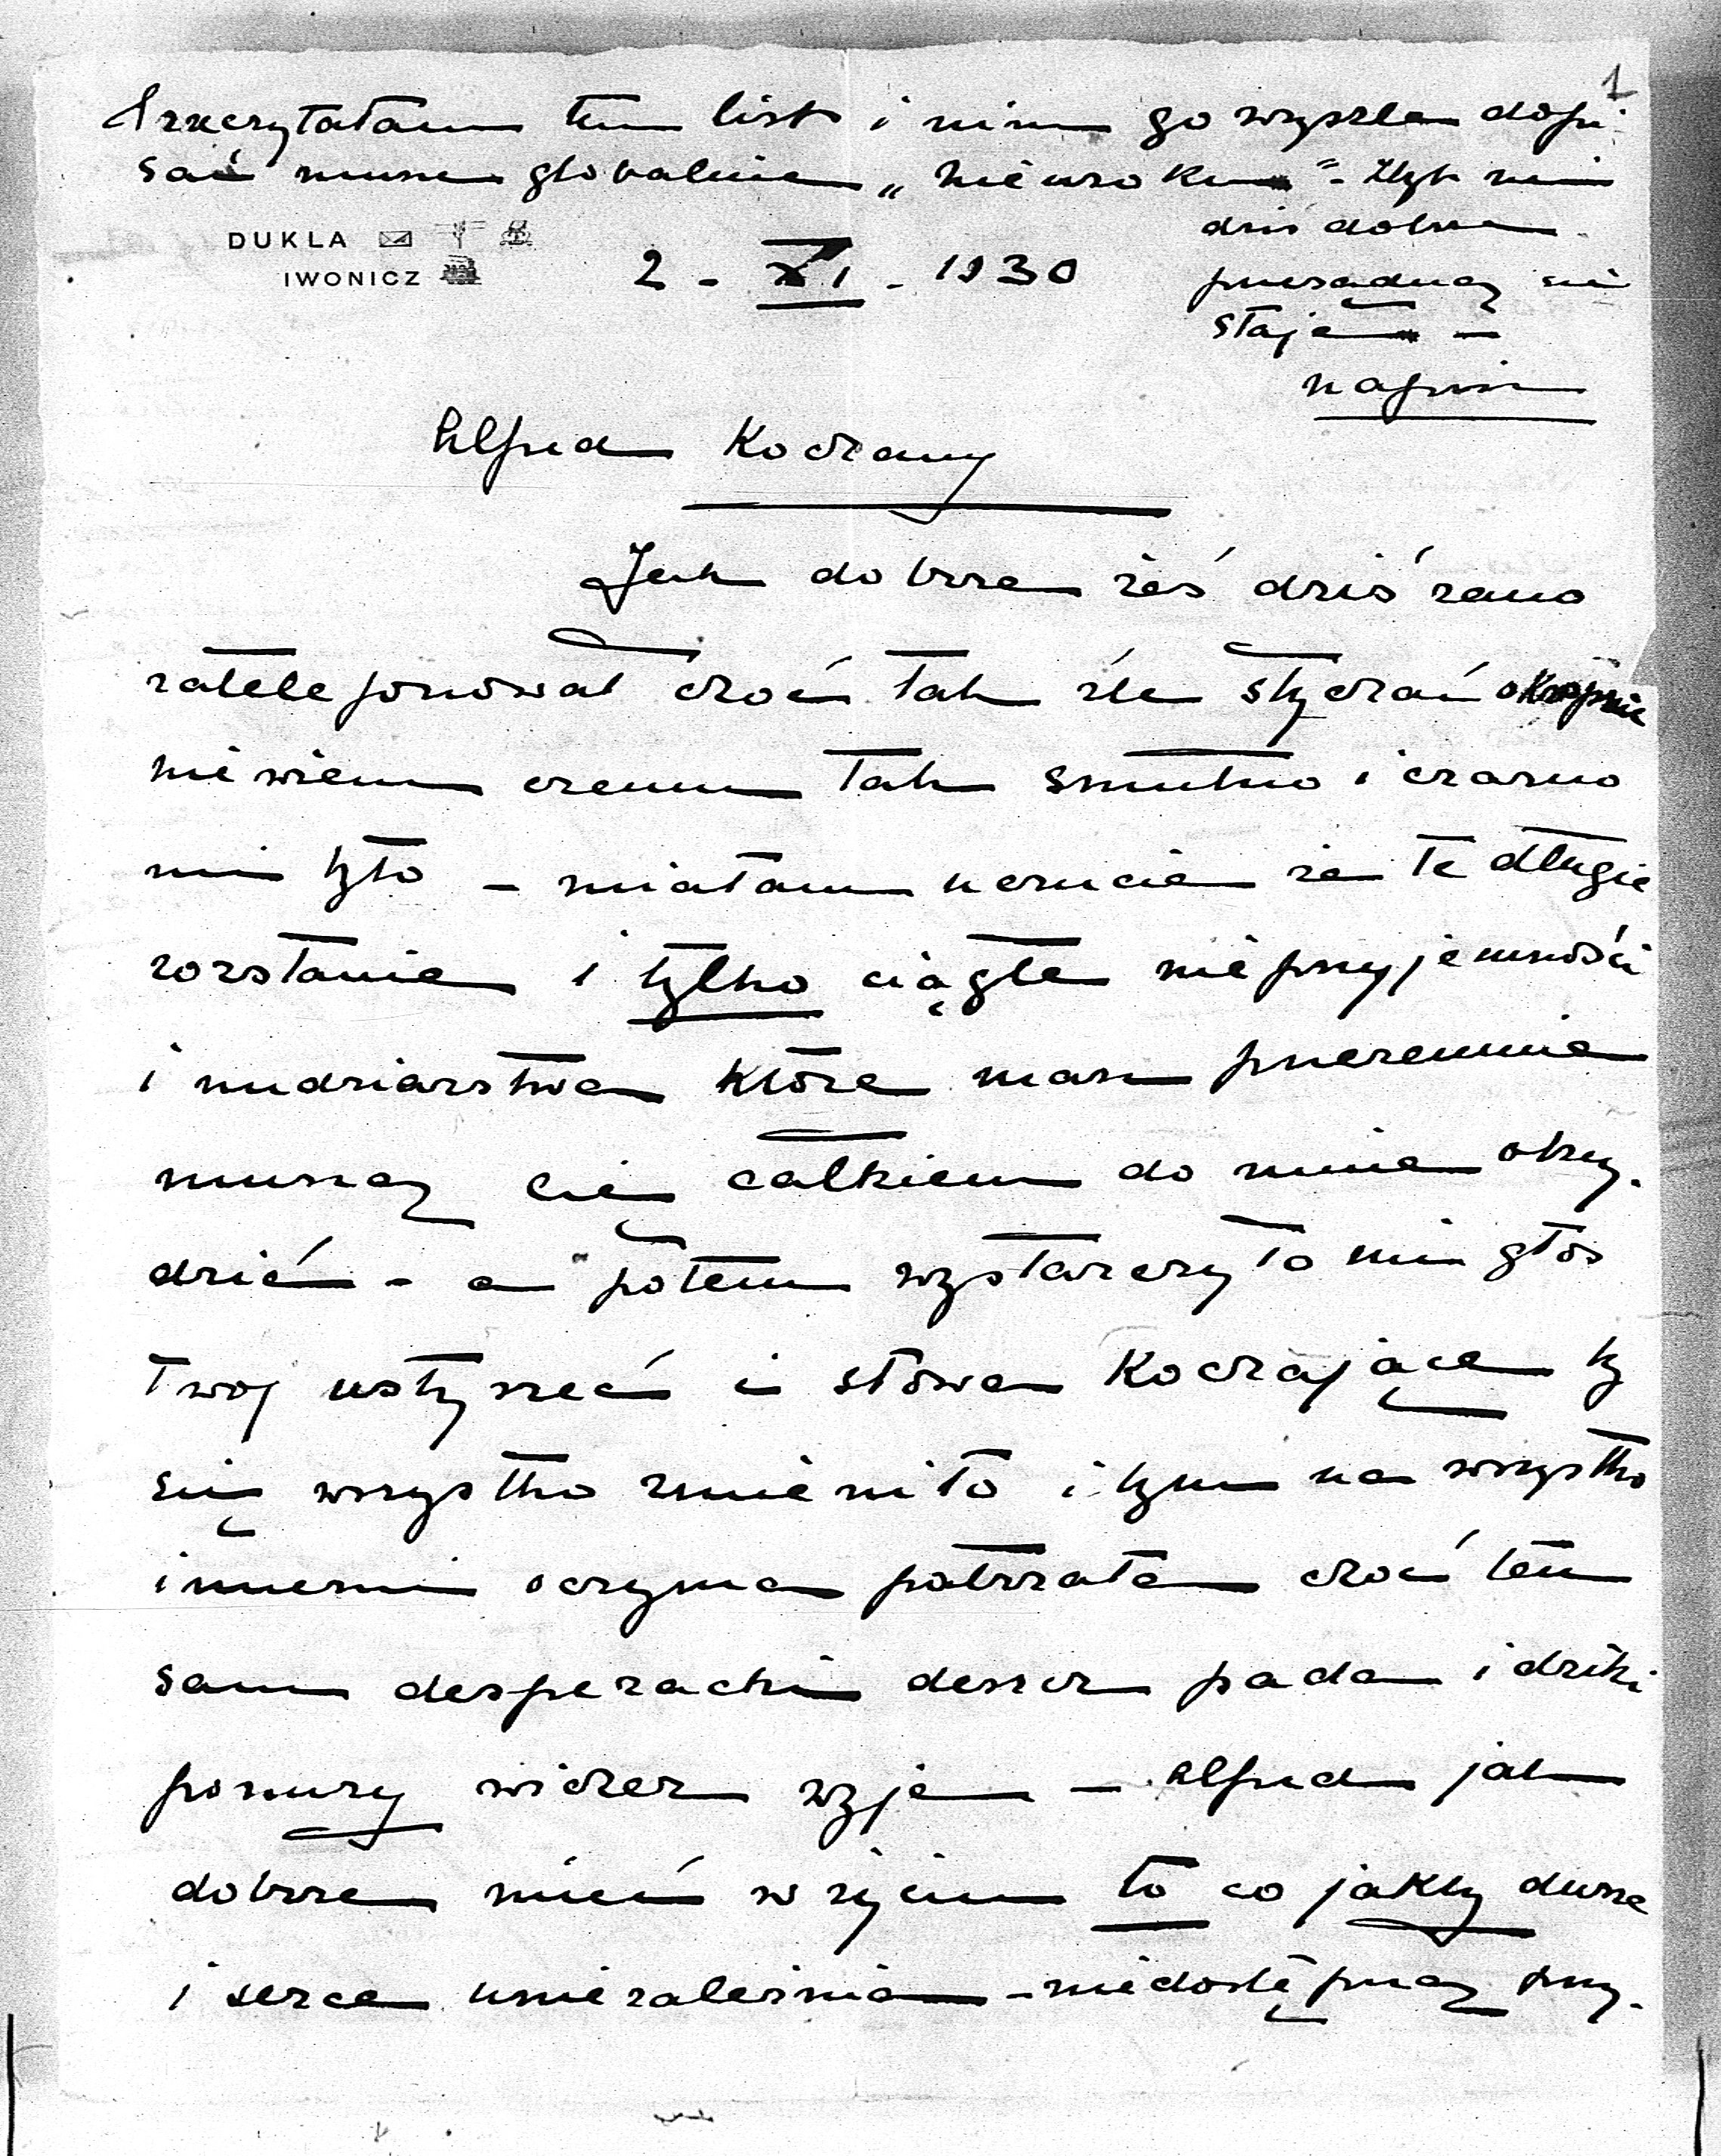 1
Przeczytałam ten list i nim go wyszlę dopi-
sać muszę globalnie „nie uroku" - Zbyt mi
dziś dobrze
przesądną się
staję –
napisz
DUKLA
IWONICZ
2 - XI - 1930
Alfred Kochany
Jak dobrze żeś dziś rano
zatelefonował choć tak źle słychać okropnie
nie wiem czemu tak smutno i czarno
mi było – miałam uczucie że te długie
rozstanie i tylko ciągłe nieprzyjemności
i nudziarstwa które masz przezemnie
muszą cię całkiem do mnie obrzy-
dzić - a potem wystarczyło mi głos
twoj usłyszeć i słowa kochające by
się wszystko zmieniło i bym na wszystko
innemi oczyma patrzała choć ten
sam desperacki deszcz pada i dziki
ponury wicher wyje – Alfred jak
dobrze mieć w życiu to co jakby duszę
i serce uniezależnia – niedostępną przy-